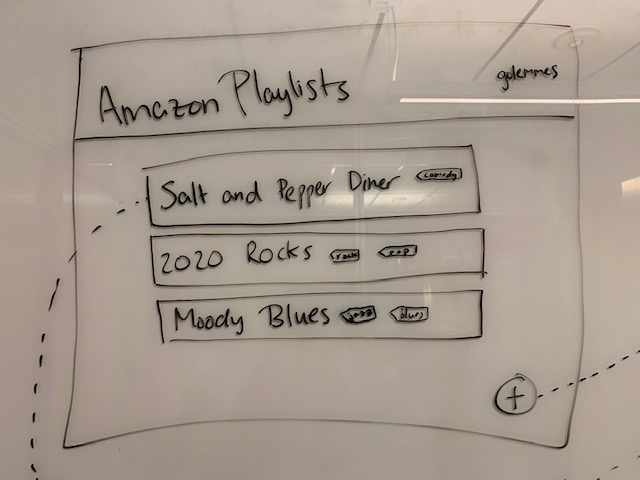 Amazon Playlists
golemmes
Salt and Pepper Diner comedy
2020 Rocks rock pop
Moody Blues jazz blues
+